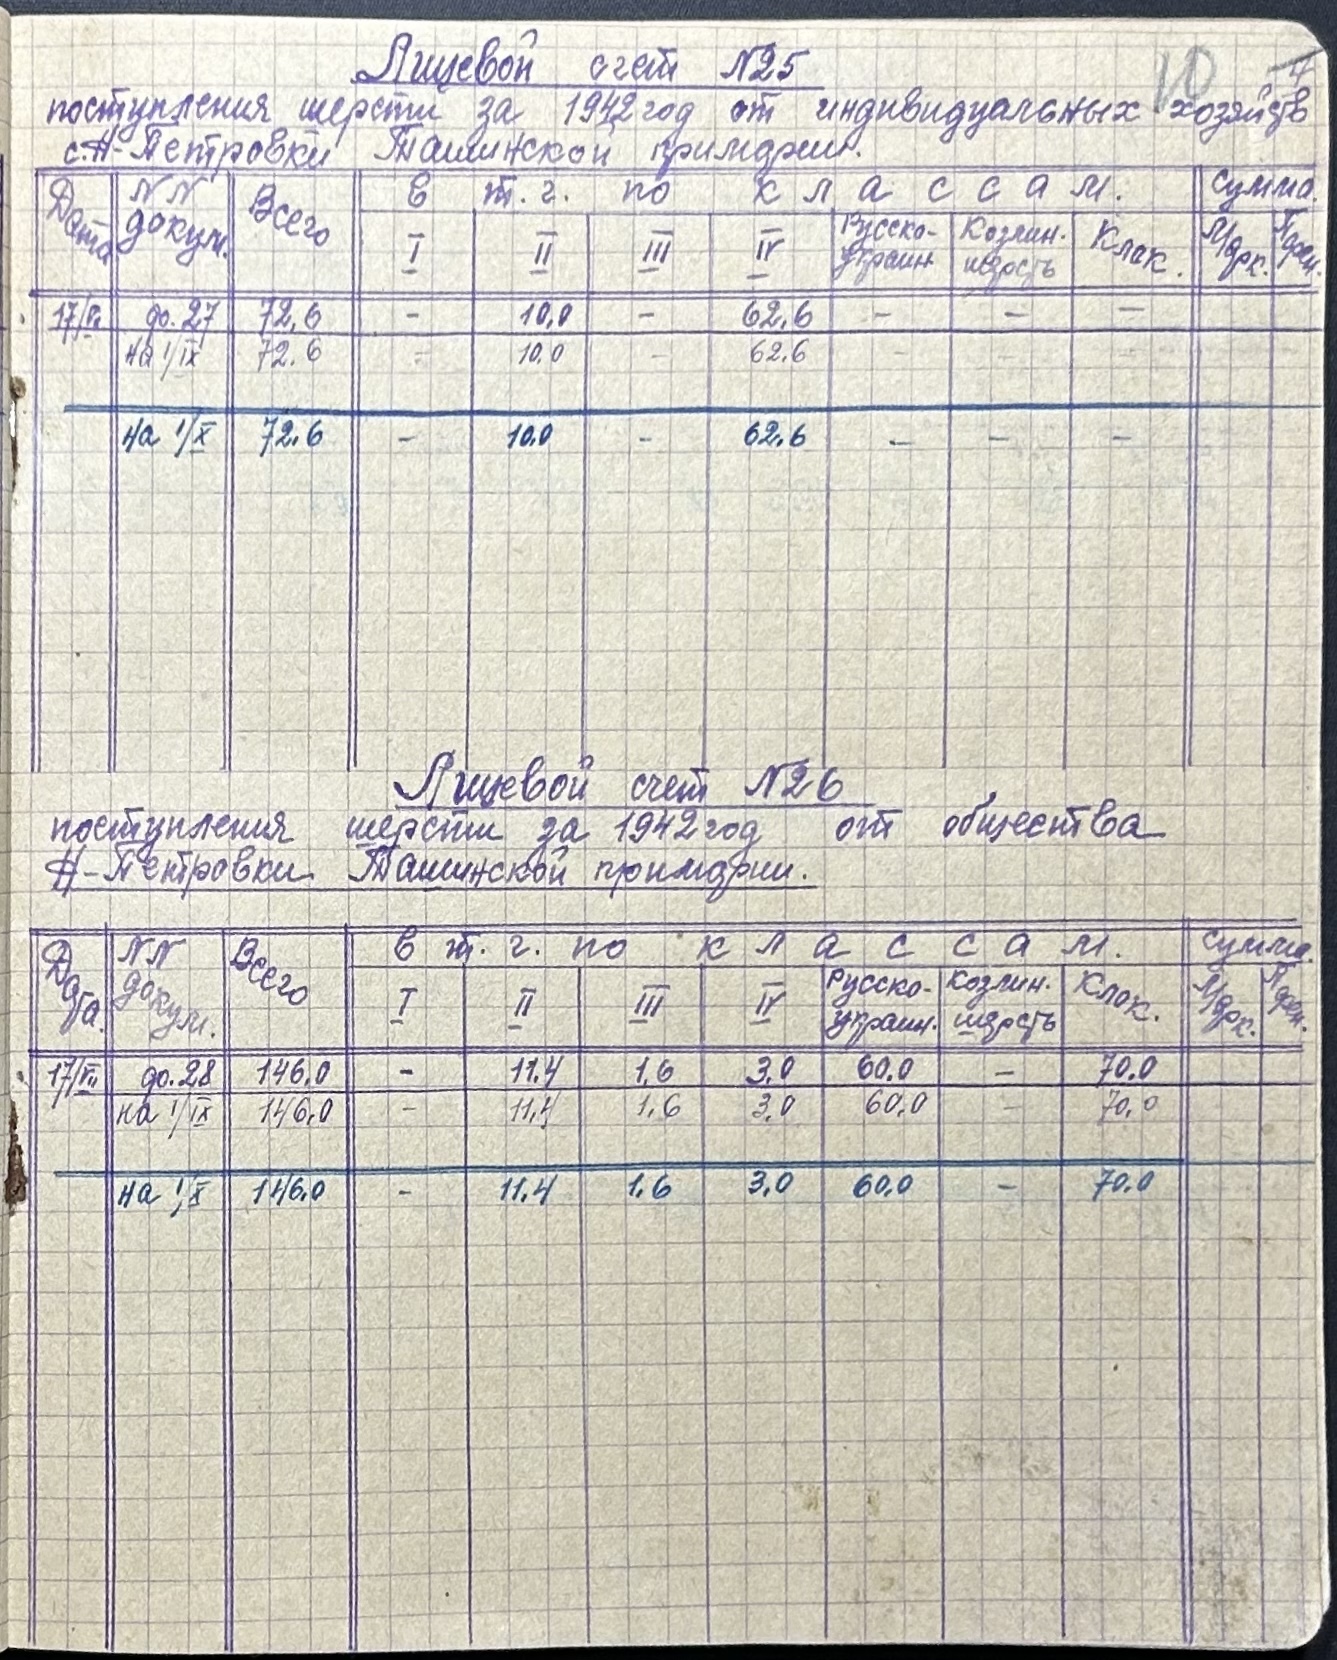 10
Лицевой счет N25
поступления шерсти за 1942 год от индивидуальных хозяйств
с. Н-Петровки Ташинской примарии.
Дата NN докум. Всего В т. г. по классам. Сумма.
I II III IV Русско-украин. Козлин. шерсть Клок. Марк. Пфен.
17/VII до. 27 72,6 - 10,0 - 62,6 - - -
на 1/IX 72.6 - 10.0 - 62.6 - - -
на 1/X 72.6 - 10.0 - 62.6 - - -
Лицевой счет N26
поступления шерсти за 1942 год от общества
Н-Петровки Ташинской примарии.
Дата. NN докум. Всего В т. г. по классам. Сумма.
I II III IV Русско-украин. Козлин. шерсть Клок. Марк. Пфен.
17/VII до. 28 146.0 - 11.4 1,6 3,0 60.0 - 70.0
на 1/IX 146,0 - 11,4 1,6 3,0 60,0 - 70,0
на 1/X 146.0 - 11.4 1.6 3,0 60.0 - 70.0